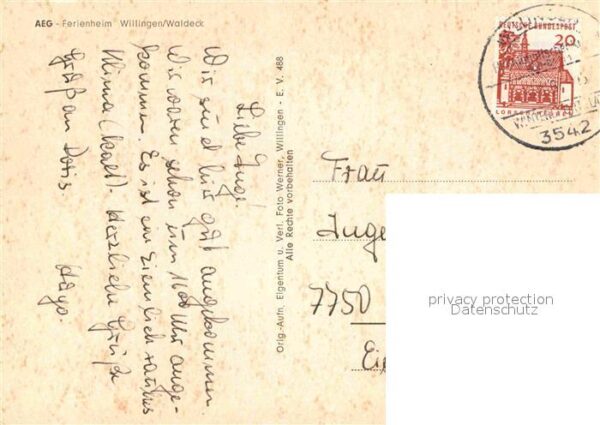 AEG - Ferienheim Willingen/Waldeck
Liebe Inge!
Wir sind hier gut angekommen.
Wir waren schon um 16 00 Uhr ange-
kommen. Es ist ein ziemlich rauhes
Klima (kalt). Herzliche Grüße
Gruß an Doris.
Hayo.
Orig.-Aufn. Eigentum u. Verl. Foto Werner, Willingen - E. V. 488
Alle Rechte vorbehalten
DEUTSCHE BUNDESPOST
20
3542
Frau
Inge
7750
privacy protection
Datenschutz